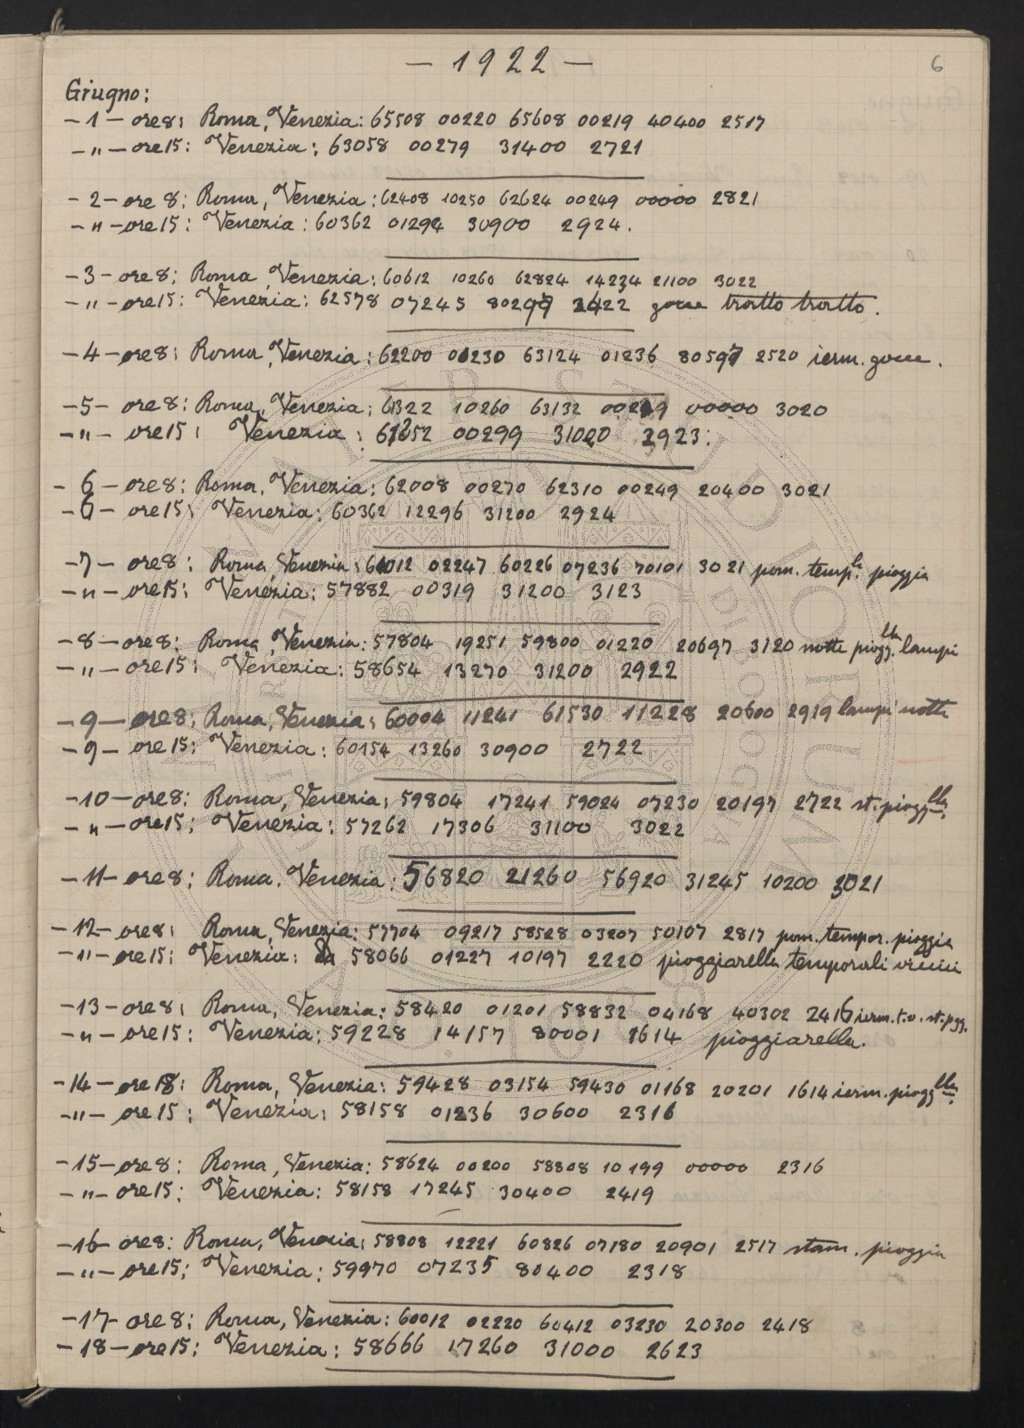 6
— 1922 —
Giugno:
-1- ore 8: Roma, Venezia: 65508 00220 65608 00219 40400 2517
-"- ore 15: Venezia: 63058 00279 31400 2721
-2- ore 8: Roma, Venezia: 62408 10250 62624 00249 00000 2821
-"- ore 15: Venezia: 60362 01294 30900 2924.
-3- ore 8: Roma, Venezia: 60612 10260 62824 14234 21100 3022
-"- ore 15: Venezia: 62578 07245 80297 2422 gocce tratto tratto.
-4- ore 8: Roma, Venezia: 62200 00230 63124 01236 80597 2520 ierm. gocce.
-5- ore 8: Roma, Venezia: 61322 10260 63132 00249 00000 3020
-"- ore 15: Venezia: 00299 31020 2923.
-6- ore 8: Roma, Venezia: 62008 00270 62310 00249 20400 3021
-6- ore 15: Venezia: 60362 12296 31200 2924
-7- ore 8: Roma, Venezia: 61012 02247 60226 07236 70101 3021 pom. temp.le pioggia
-"- ore 15: Venezia: 57882 00319 31200 3123
-8- ore 8: Roma, Venezia: 57804 19251 59800 01220 20697 3120 notte piogg.lla lampi
-"- ore 15: Venezia: 58654 13270 31200 2922
-9- ore 8: Roma, Venezia: 60004 11241 61530 11228 20600 2919 lampi notte
-9- ore 15: Venezia: 60154 13260 30900 2722
-10- ore 8: Roma, Venezia: 59804 17241 59024 07230 20197 2722 st. piogg.lla
-"- ore 15: Venezia: 57262 17306 31100 3022
-11- ore 8: Roma. Venezia: 56820 21260 56920 31245 10200 3021
-12- ore 8: Roma, Venezia: 57704 09217 58528 03207 50107 2817 pom. tempor. pioggia
-"- ore 15: Venezia: 58066 01227 10197 2220 pioggiarella temporali vicini
-13- ore 8: Roma, Venezia: 58420 01201 58832 04168 40302 2416 ierm. t.o. st. pgg.
-"- ore 15: Venezia: 59228 14157 80001 1614 pioggiarella.
-14- ore 18: Roma, Venezia: 59428 03154 59430 01168 20201 1614 ierm. piogg.lla
-"- ore 15: Venezia: 58158 01236 30600 2316
-15- ore 8: Roma, Venezia: 58624 00200 58808 10199 00000 2316
-"- ore 15: Venezia: 58158 17245 30400 2419
-16- ore 8: Roma, Venezia: 58808 12221 60826 07180 20901 2517 stam. pioggia
-"- ore 15: Venezia: 59970 07235 80400 2318
-17- ore 8: Roma, Venezia: 60012 02220 60412 03230 20300 2418
-18- ore 15: Venezia: 58666 17260 31000 2623